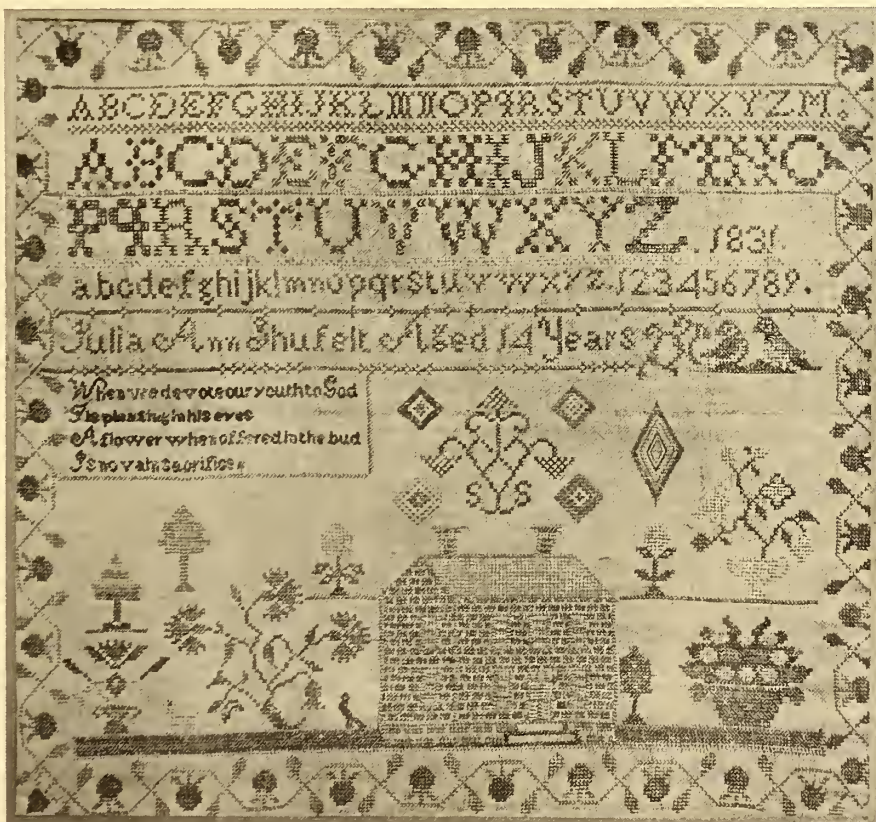 ABCDEFGHIJKLMNOPQRSTUVWXYZM.
ABCDEFGHIJKLMNO
PQRSTUVWXYZ. 1831.
abcdefghijklmnopqrstuvwxyz123456789.
Julia Ann Shufelt Aged 14 Years
When we devote our youth to God
Tis pleasing in his eyes
A flower when offered in the bud
Is no vain sacrifice
S S